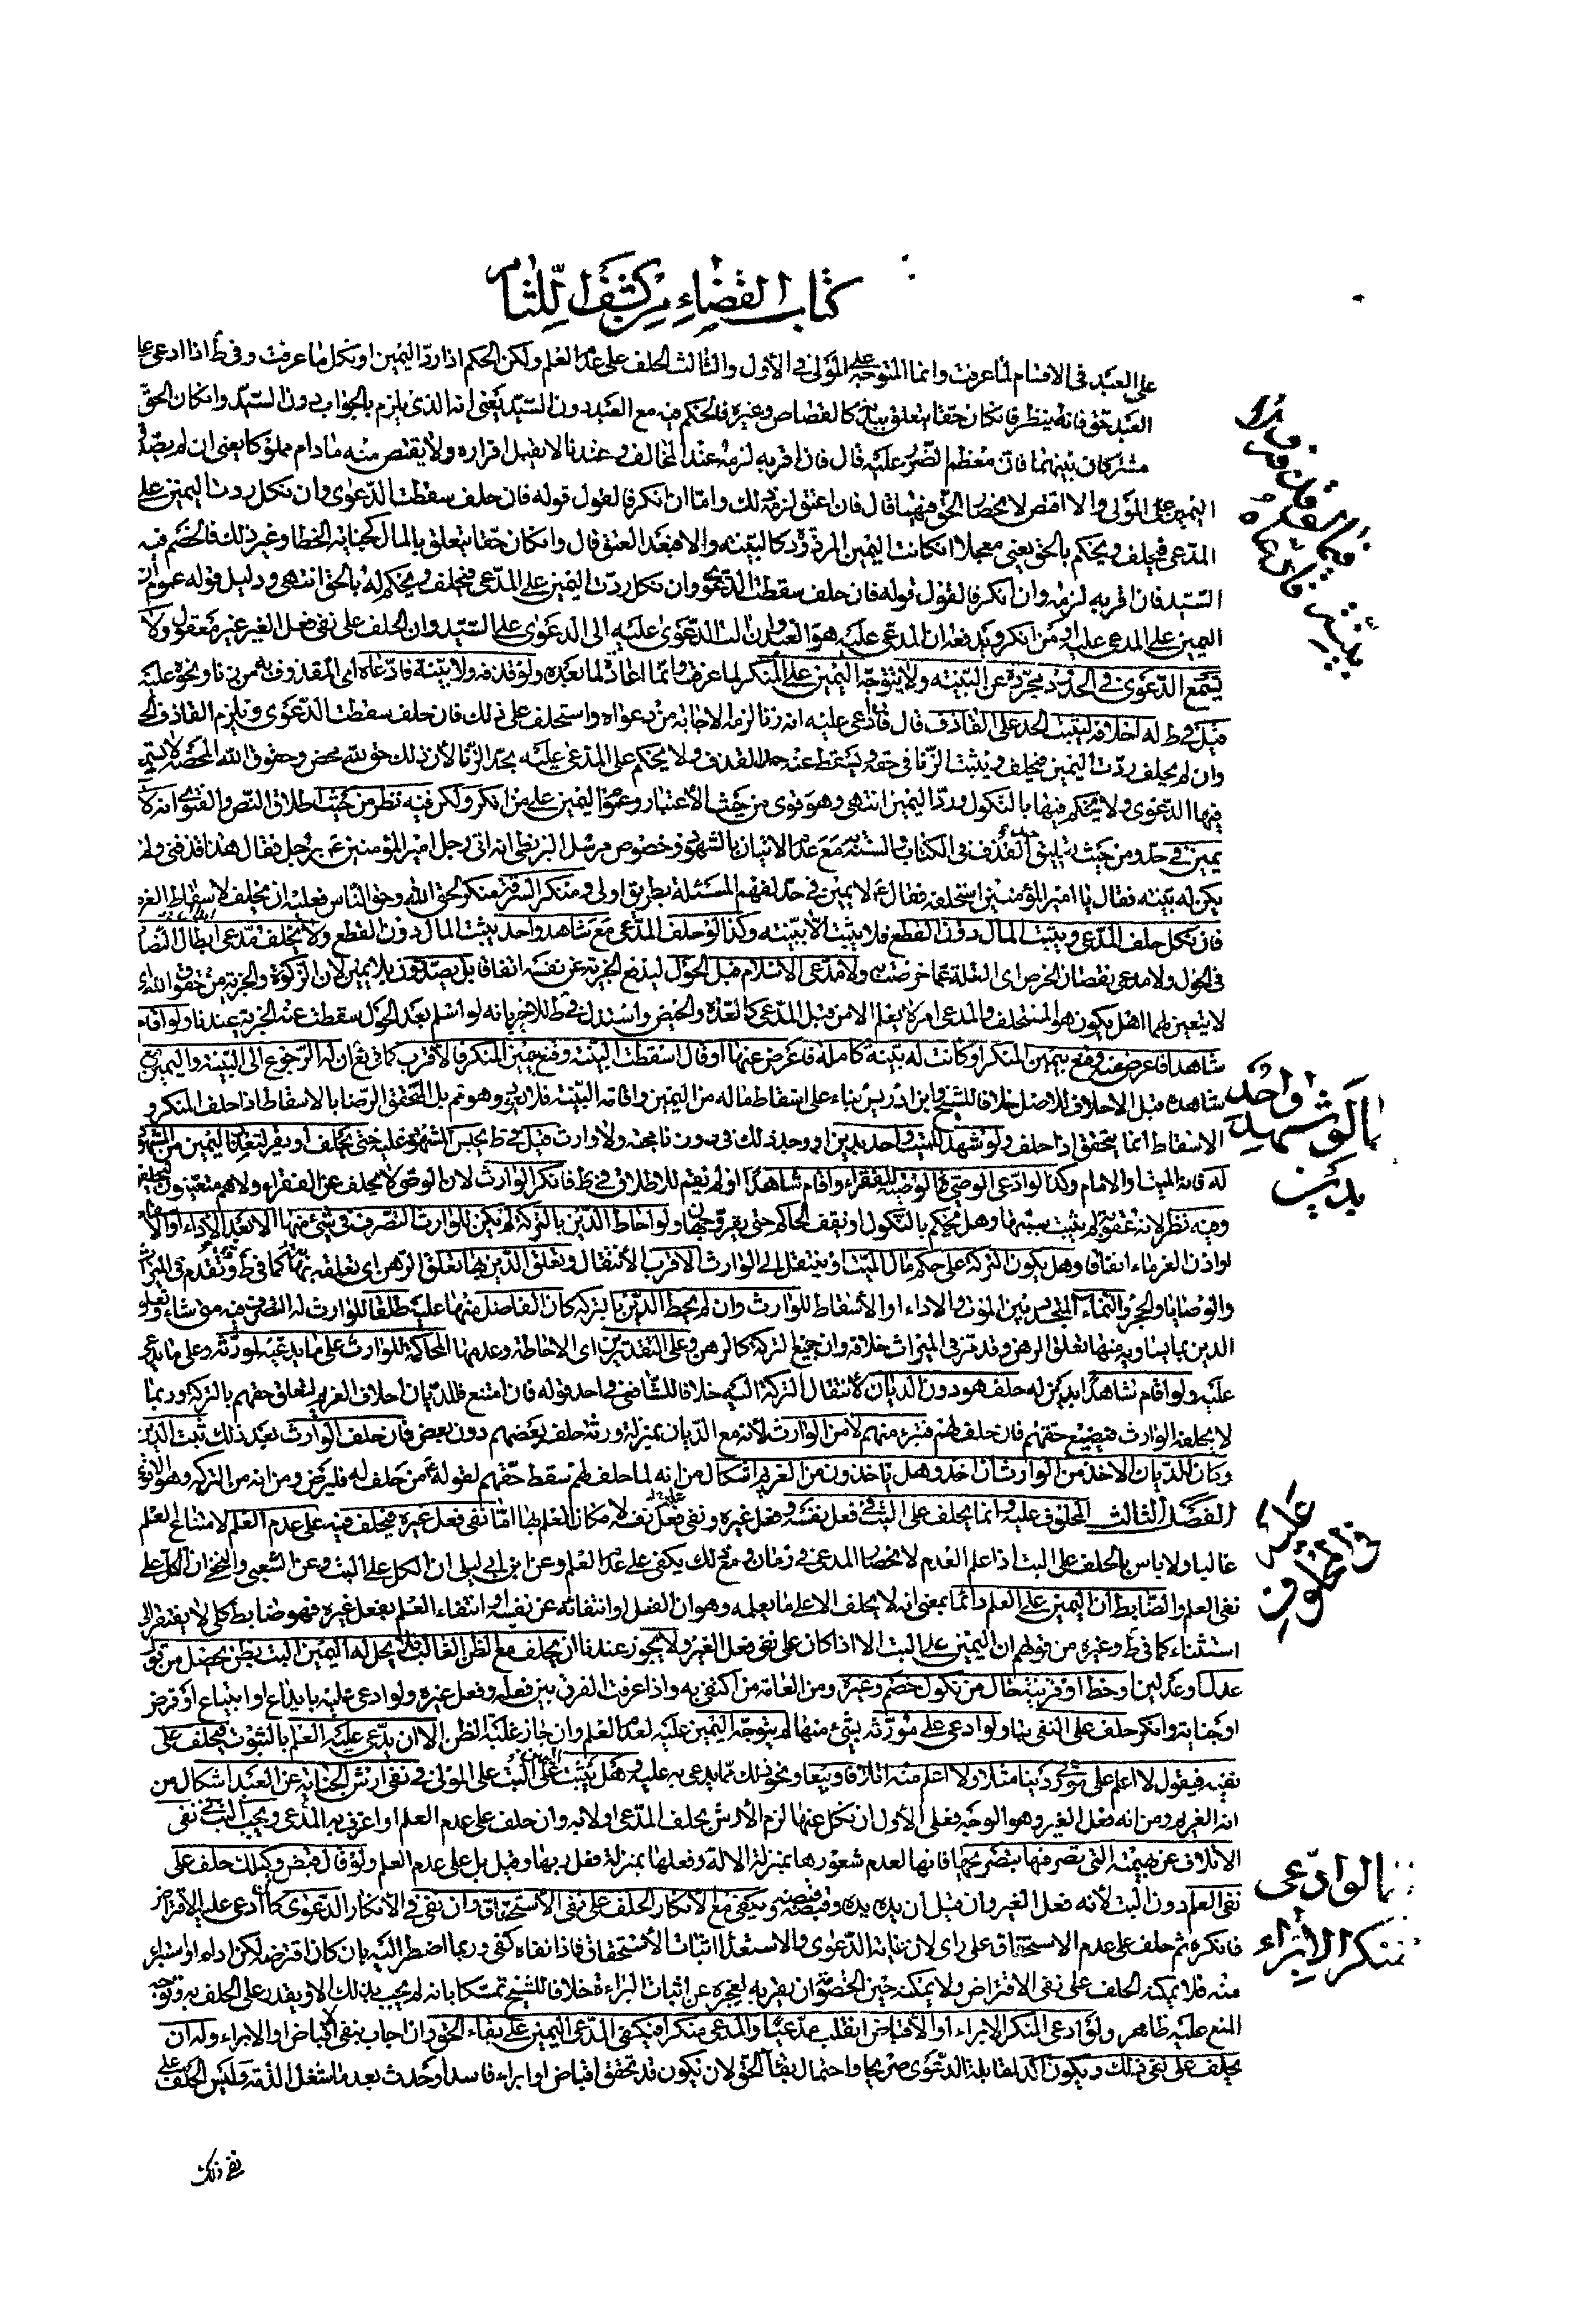 كتاب القضاء من كشف اللثام
على العبد في الاقسام لما عرفت وانما المتوجه على المولى في الاول والثالث الحلف على عدم العلم ولكن الحكم اذا ردّ اليمين او نكل ما عرفت وفي ط اذا ادعى على
العبد حق فانه ينظر فان كان حقا يتعلق ببدنه كالقصاص وغيره فالحكم فيه مع العبد دون السيّد يعني انه الذي يلزم بالجواب دون السيّد وان كان الحق
مشتركا بينهما فان معظم الضرر عليه قال فان اقر به لزمه عند المخالف وعندنا لا يقبل اقراره ولا يقتص منه ما دام مملوكا يعني ان لم يصدقه
المولى والا اقتص لانحصار الحق فيهما قال فان اعتق لزمه ذلك واما ان انكر فالقول قوله فان حلف سقطت الدعوى وان نكل ردت اليمين على
المدعى فيحلف ويحكم بالحق يعني معجلا ان كانت اليمين المردودة كالبينه والا فبعد العتق قال وان كان حقا يتعلق بالمال كجناية الخطا وغير ذلك فالخصم فيه
السّيد فان اقر به لزمه وان انكر فالقول قوله فان حلف سقطت الدعوى وان نكل ردت اليمين على المدعى فيحلف ويحكم له بالحق انتهى ودليل قوله عموم ان
اليمين على المدعى عليه او من انكر ويدفعه ان المدعى عليه هو العبد وان الت الدعوى عليه الى الدعوى على السّيد وان الحلف على نفي فعل الغير غير معقول ولا
تسمع الدعوى في الحدود مجردة عن البينه ولا يتوجه اليمين على المنكر لما عرفت وانما اعاد لما بعده ولو قذفه ولا بينة فادعاه اي المقذوف به من زنا ونحوه عليه
قيل في ط له احلافه ليثبت الحد على القاذف قال فادعى عليه انه زنا لزمه الاجابة من دعواه واستحلف على ذلك فان حلف سقطت الدعوى ويلزم القاذف الحد
وان لم يحلف ردت اليمين فيحلف ويثبت الزنا في حقه ويسقط عنه حد القذف ولا يحكم على المدعى عليه بحد الزنا لان ذلك حق لله محض وحقوق الله المحضة لا يسمع
فيها الدعوى ولا يحكم فيها بالنكول ورد اليمين انتهى وهو قوى من حيث الاعتبار وعموم اليمين على من انكر ولكن فيه نظر من حيث اطلاق النص والفتوى انه لا
يمين في حد ومن حيث تعليق حد القذف في الكتاب والسنة مع عدم الاتيان بالشهود وخصوص مرسل البزنطي انه اتى رجل امير المؤمنين ع برجل فقال هذا قذفني ولم
يكن له بينه فقال يا امير المؤمنين استحلفه فقال ع لا يمين في حد لفهم المسئلة بطريق اولى ومنكر السرقة منكر لحق الله وحق الناس فعليه ان يحلف لاسقاط الغرم
فان نكل حلف المدعى ويثبت المال دون القطع فلا يثبت الا ببينه وكذا لو حلف المدعى مع شاهد واحد يثبت المال دون القطع ولا يحلف مدعى ابدال النصاب
في الحول ولا مدعي نقصان الخرص اى الغلة عما خرصت به ولا مدعي الاسلام قبل الحول ليدفع الجزية عن نفسه اتفاقا بل يصدقون بلا يمين لان الزكوة والجزية من حقوق الله
لا يتعين لهما اهل يكون هو المستحلف والمدعى امر لا يعلم الا من قبل المدعى كالعدة والحيض واستدل في ط للاخير بانه لو اسلم بعد الحول سقطت عنه الجزية عندنا ولو اقام
شاهدا فاعرض عنه وقنع بيمين المنكر او كانت له بينة كاملة فاعرض عنها او قال اسقطت البينة وقنع بيمين المنكر فالاقرب كما في يع ان له الرجوع الى البينة واليمين مع
شاهده قبل الاحلاف للاصل خلافا للشيخ وابن ادريس بناء على اسقاط ماله من اليمين واقامة البينة فلا يعود وهو تم بل التحقق الرضا بالاسقاط اذا حلف المنكر و
الاسقاط انما يتحقق اذا حلف ولو شهد للميت واحد بدين او وجد ذلك في روزنامجته ولا وارث قيل في ط يحبس المشهود عليه حتى يحلف او يقر لتعذر اليمين من المشهود
له فانه الميت او الامام وكذا لو ادعى الوصى ان الوصية للفقراء واقام شاهدا او لم يقم للاطلاق في ط فانكر الوارث لان الوصي لا يحلف عن الفقراء ولا هم متعينون للحلف
وفيه نظر لانه عقوبة لم يثبت سببها وهل يحكم بالنكول او يقف الحاكم حتى يقر وجهان ولو احاط الدين بالتركة لم يكن للوارث التصرف في شئ منها الا بعد الاداء او الاسقاط
او اذن الغرماء اتفاقا وهل يكون التركة على حكم مال الميت او ينتقل الى الوارث الاقرب الانتقال وتعلق الدين بها تعلق الرهن اى تعلقه بها كما في ط وتقدم في الميراث
والوصايا والحجر والنماء المتجدد بين الموت والاداء او الاسقاط للوارث وان لم يحط الدين بالتركة كان الفاضل منها عليه طلقا للوارث له التصرف فيه متى شاء وتعلق
الدين بما يساويه منها تعلق الرهن وقد مر في الميراث خلافه وان جميع التركة كالرهن وعلى التقديرين اى الاحاطة وعدمها المحاكمة للوارث على ما يدعيه لمورثه وعلى ما يدعى
عليه ولو اقام شاهدا بدين له حلف هو دون الديان لانتقال التركة اليه خلافا للشافعي في احد قوليه فان امتنع فللديان احلاف الغريم لتعلق حقهم بالتركة وربما
لا يحلفه الوارث فيضيع حقهم فان حلف لهم فتبرئ منهم لا من الوارث لانه مع الديان بمنزلة ورثة حلف بعضهم دون بعض فان حلف الوارث بعد ذلك ثبت الدين
وكان للديان الاخذ من الوارث ان اخذ وهل ياخذون من الغريم اشكال من انه لما حلف لهم سقط حقهم لقوله ع من حلف له فليرض ومن انه من التركة وهو الاقوى
الفصل الثالث المحلوف عليه وانما يحلف على البت في فعل نفسه وفعل غيره ونفي فعل نفسه لامكان العلم بها اما نفي فعل غيره فيحلف فيه على عدم العلم لامتناع العلم
غالبا ولا باس بالحلف على البت اذا علم العدم لانحصار المدعى في زمان ومع ذلك يكفي على عدم العلم وعن ابن ابي ليلى ان الكل على البت وعن الشعبي والنخعي ان الكل على
نفي العلم والضابط ان اليمين على العلم دائما بمعنى انه لا يحلف الا على ما يعلمه وهو ان الفعل او انتفائه عن نفسه او انتفاء العلم بفعل غيره فهو ضابط كلي لا يفتقر الى
استثناء كما في ط وغيره من قولهم ان اليمين على البت الا اذا كان على نفي فعل الغير ولا يجوز عندنا ان يحلف مع الظن الغالب فلا يحل له اليمين البت بظن يحصل من قول
عدل او عدلين او خط او قرينة حال من نكول خصم وغيره ومن العامة من اكتفى به واذا عرفت الفرق بين فعله وفعل غيره ولو ادعى عليه بايداع او ابتياع او قرض
او جناية وانكر حلف على النفي بتا ولو ادعى على مورثه بشئ منها لم يتوجه اليمين عليه لعدم العلم وان جاز غلبة الظن الا ان يدعى عليه العلم بالثبوت فيحلف على
نفيه فيقول لا اعلم على مورثى دينا مثلا ولا اعلم منه اتلافا وبيعا ونحو ذلك مما يدعى به عليه وهل يثبت اليمين على البت على المولى في نفي ارش الجناية عن العبد اشكال من
انه الغريم ومن انه فعل الغير وهو الوجه فعلى الاول ان نكل عنها لزم الارش بحلف المدعى اولا به وان حلف على عدم العلم او اعترف به المدعى ويجب البت في نفي
الاتلاف عن بهيمته التي تصرفها بتصريفها فانها لعدم شعورها بمنزلة الالة وفعلها بمنزلة فعل ربها وقيل بل على عدم العلم ولو قال قبض وكيلك حلف على
نفي العلم دون البت لانه فعل الغير وان قيل ان يده يده وقبضه قبضه ويكفي مع الانكار الحلف على نفي الاستحقاق وان نفى في الانكار الدعوى كما ادعى عليه الاقتراض
فانكره ثم حلف على عدم الاستحقاق على راى لان غاية الدعوى والاستعداء اثبات الاستحقاق فاذا نفاه كفى وربما اضطر اليه بان كان اقترض لكن اداه او استبرئ
منه فلا يمكنه الحلف على نفي الاقتراض ولا يمكنه حين الخصومة ان يقر به لعجزه عن اثبات البراءة خلافا للشيخ تمسكا بانه لم يجب بذلك الا ويقدر على الحلف به وتوجه
المنع عليه ظاهر ولو ادعى المنكر الابراء او الاقباض انقلب مدعيا والمدعى منكرا فيكفي المدعى اليمين على بقاء الحق وان اجاب بنفي الاقباض او الابراء وله ان
يحلف على نفي ذلك ويكون اكد لمقابلة الدعوى صريحا واحتمال بقاء الحق لان يكون قد تحقق اقباض او ابراء فاسد او حدث بعد ما شغل الذمة وليس الحلف على
نفي ذلك
ما لو شهد واحد
بدين
في المحلوف
عليه
ما لو ادّعى
منكر الابراء